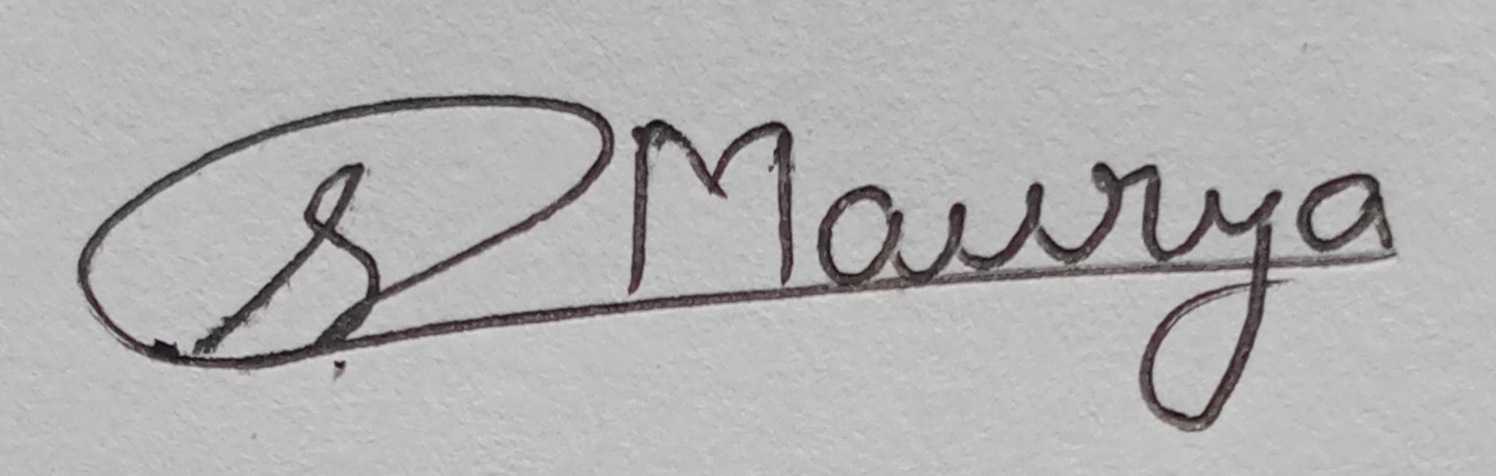 S Maurya